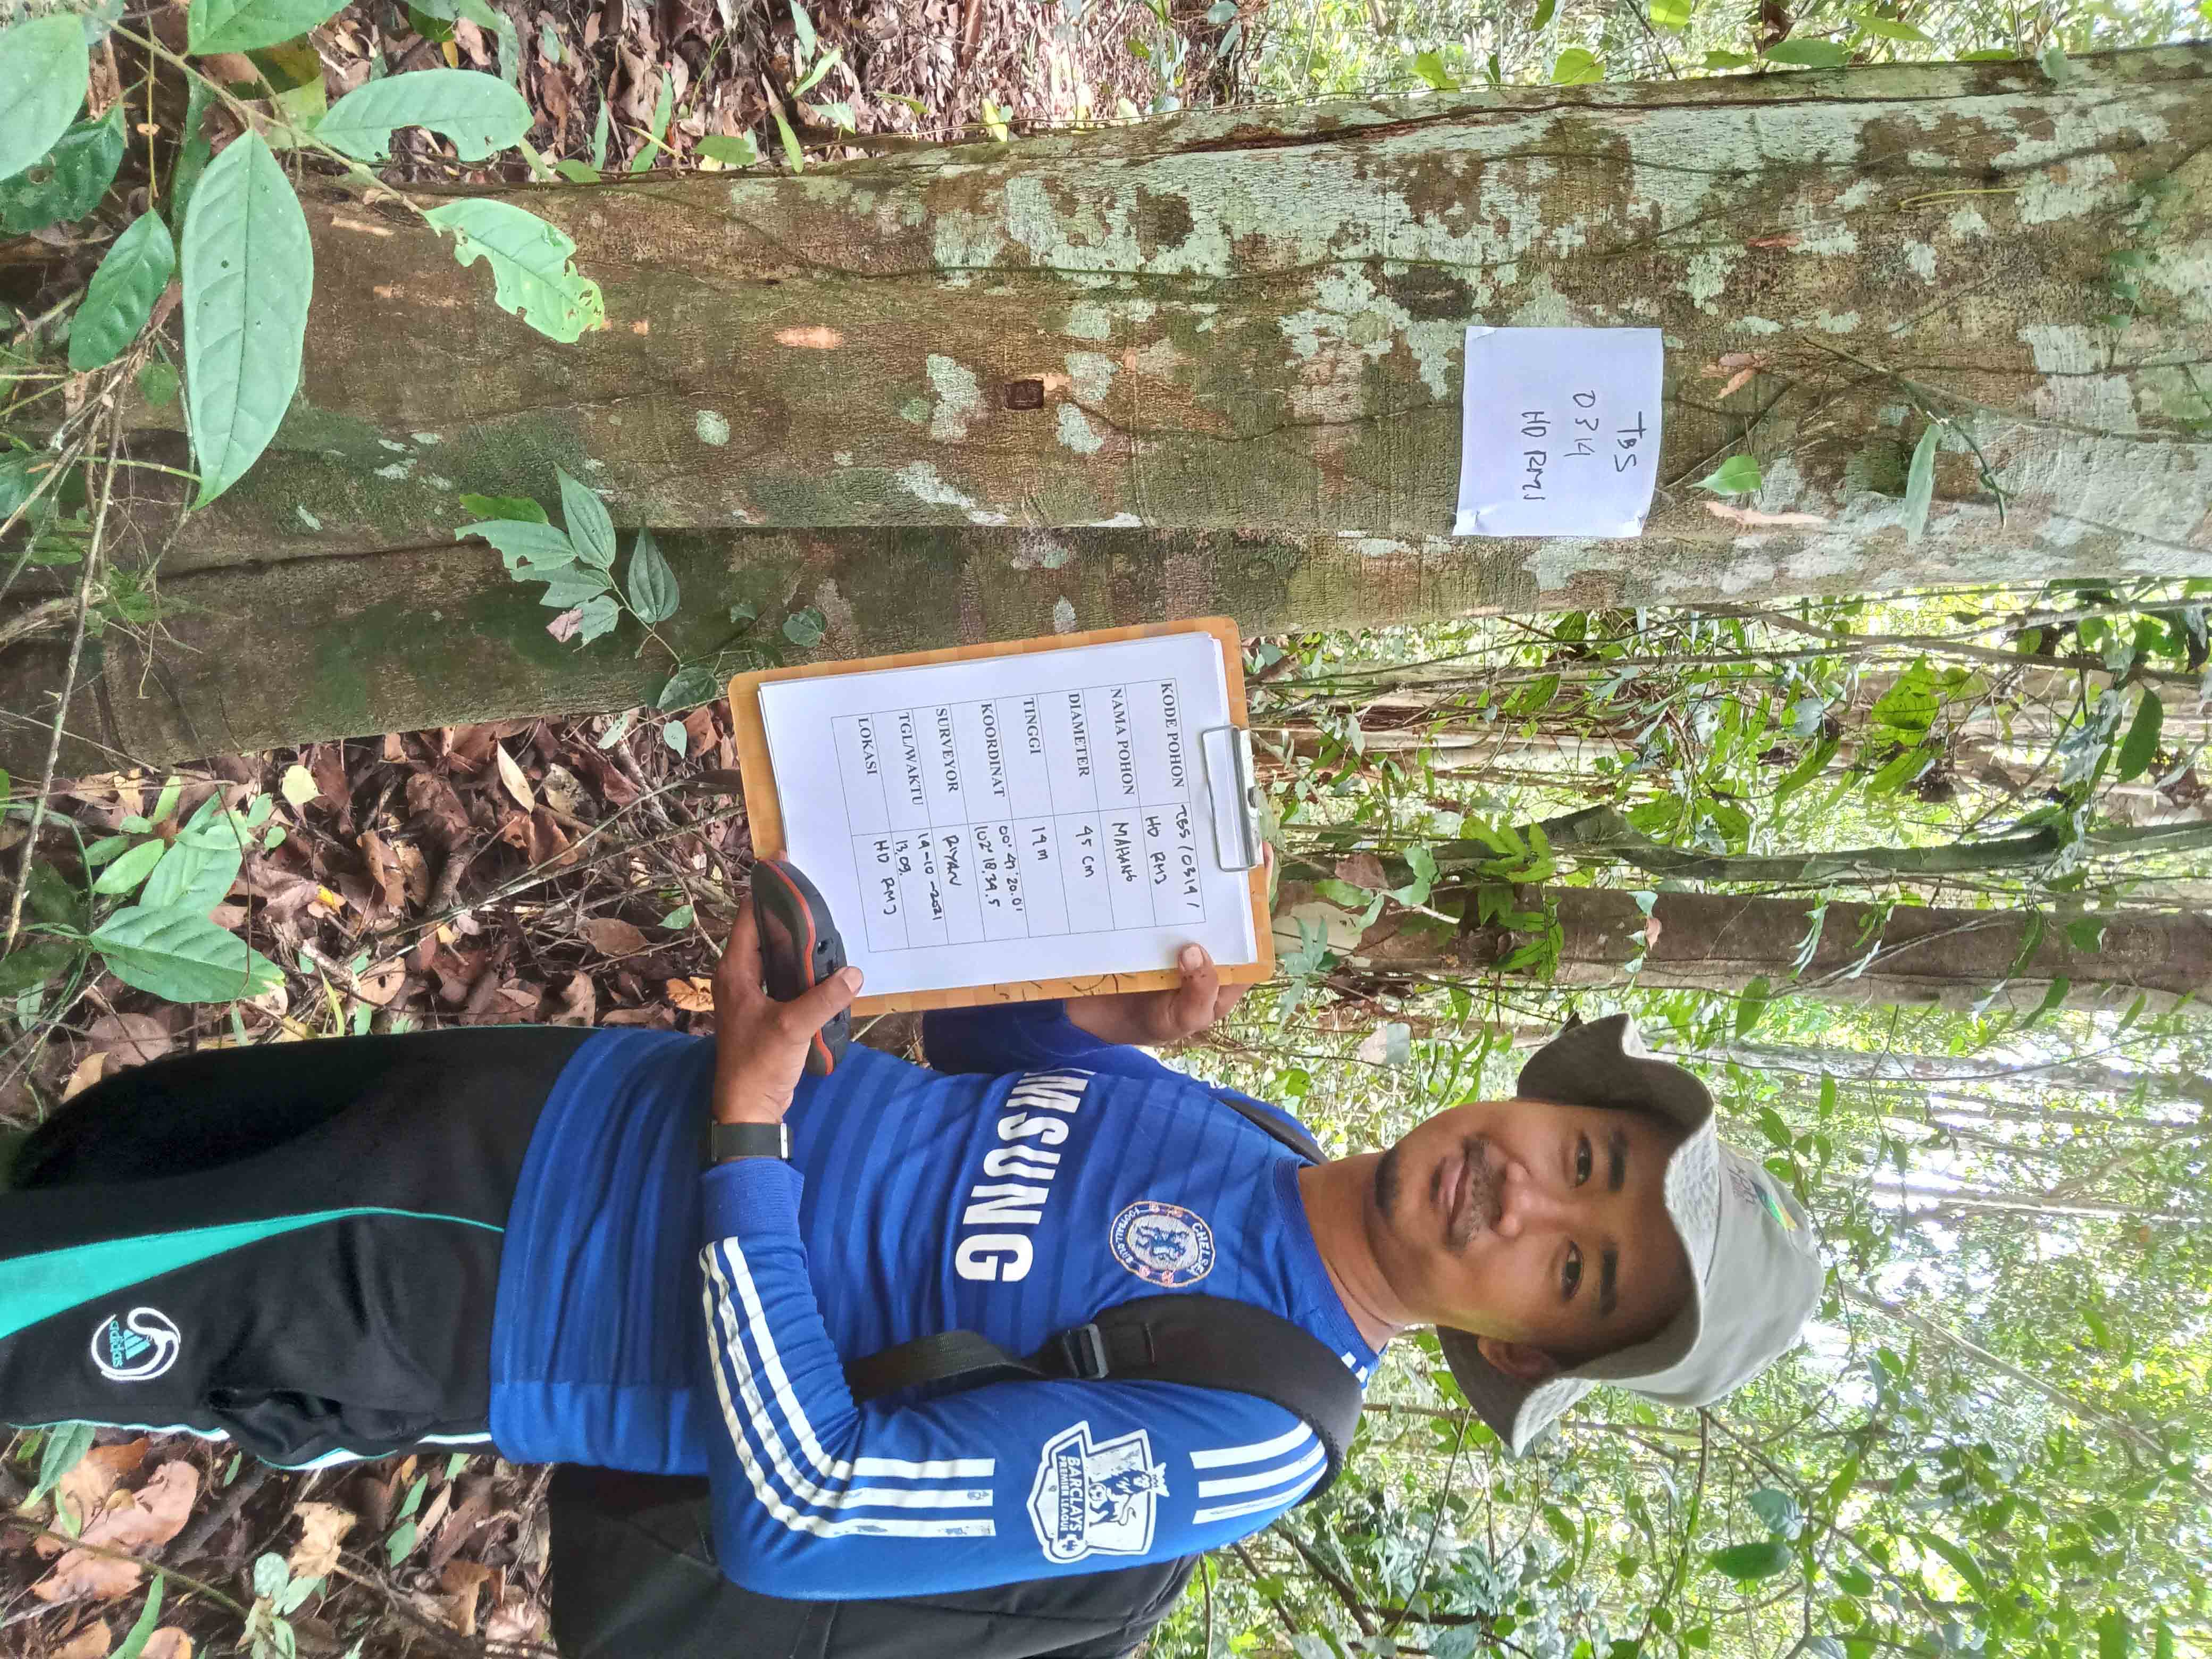 TBS
0314
HD RMJ
KODE POHON TBS / 0314 /
HD RMJ
NAMA POHON MAHANG
DIAMETER 45 cm
TINGGI 19 m
KOORDINAT 00° 47' 20.0'
102° 18.39.5
SURVEYOR RIYAN
TGL/WAKTU 14-10-2021
13.09.
LOKASI HD RMJ
CHELSEA
FOOTBALL CLUB
AMSUNG
BARCLAYS
PREMIER LEAGUE
adidas